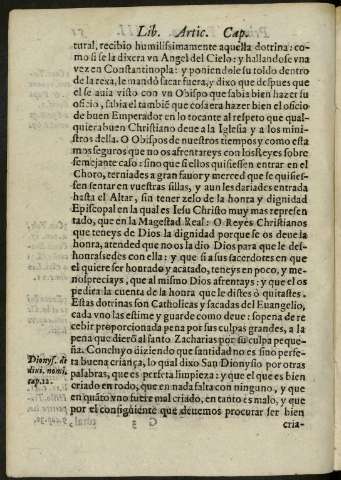 Lib. Artic. Cap.
tural, recibio humilissimamente aquella dotrina: co-
mo si se la dixera vn Angel del Cielo: y hallandose vna
vez en Constantinopla: y poniendole su toldo dentro
de la rexa, le mandó sacar fuera, y dixo que despues que
el se auia visto con vn Obispo que sabia bien hazer su
oficio, sabia el tambiē que cosa era hazer bien el oficio
de buen Emperador en lo tocante al respeto que qual-
quiera buen Christiano deue a la Iglesia y a los minis-
tros della. O Obispos de nuestros tiempos y como esta
mos seguros que no os afrentareys con los Reyes sobre
semejante caso: sino que si ellos quisiessen entrar en el
Choro, terniades a gran fauor y merced que se quisies-
sen sentar en vuestras sillas, y aun les dariades entrada
hasta el Altar, sin tener zelo de la honra y dignidad
Episcopal en la qual es Iesu Christo muy mas represen
tado, que en la Magestad Real: O Reyes Christianos
que teneys de Dios la dignidad porque se os deue la
honra, atended que no os la dio Dios para que le des-
honrassedes con ella: y que si a sus sacerdotes en que
el quiere ser honrado y acatado, teneys en poco, y me-
nospreciays, que al mismo Dios afrentays: y que el os
pedira la cuenta de la honra que le distes ò quitastes.
Estas dotrinas son Catholicas y sacadas del Euangelio,
cada vno las estime y guarde como deue: sopena de re
cebir proporcionada pena por sus culpas grandes, a la
pena que dierō al santo Zacharias por su culpa peque-
ña. Concluyo diziendo que santidad no es sino perfe-
ta buena criança, lo qual dixo San Dionysio por otras
palabras, que es perfeta limpieza: y que el que es bien
criado en todo, que en nada falta con ninguno, y que
en quāto vno fuere mal criado, en tanto es malo, y que
por el consiguiente que deuemos procurar ser bien
cria-
Dionys. de
diui. nomi.
cap. 12.